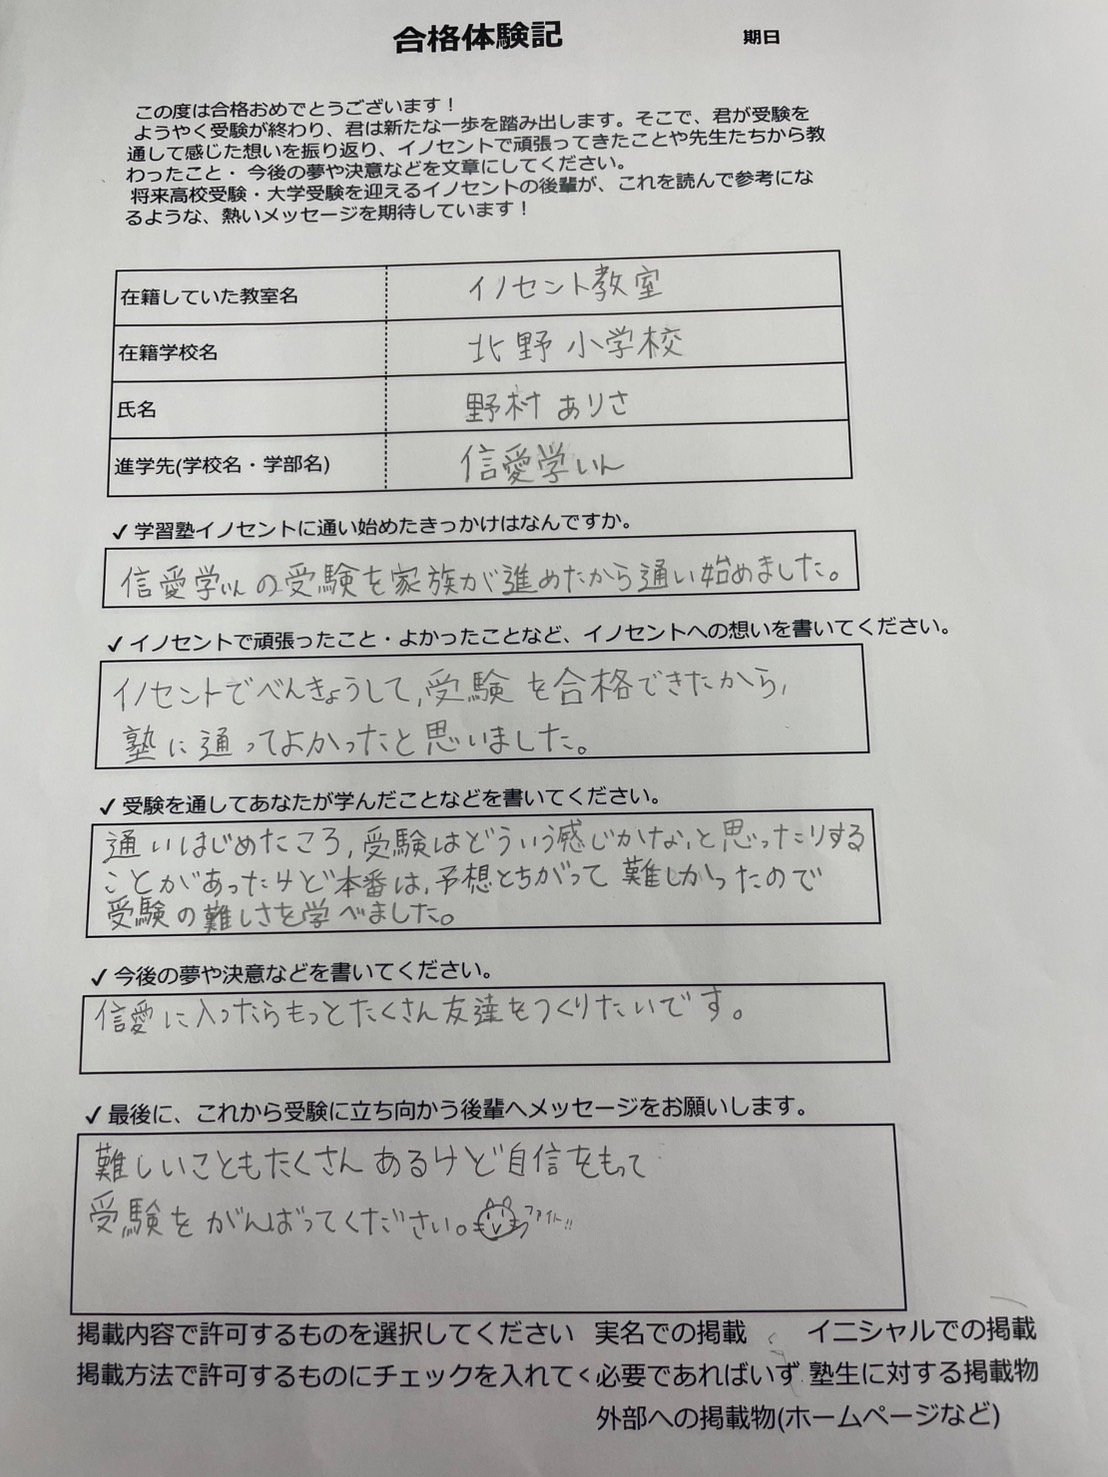 合格体験記 期日
この度は合格おめでとうございます！
ようやく受験が終わり、君は新たな一歩を踏み出します。そこで、君が受験を
通して感じた想いを振り返り、イノセントで頑張ってきたことや先生たちから教
わったこと・今後の夢や決意などを文章にしてください。
将来高校受験・大学受験を迎えるイノセントの後輩が、これを読んで参考にな
るような、熱いメッセージを期待しています！
在籍していた教室名 イノセント教室
在籍学校名 北野小学校
氏名 野村ありさ
進学先(学校名・学部名) 信愛学いん
✓学習塾イノセントに通い始めたきっかけはなんですか。
信愛学いんの受験を家族が進めたから通い始めました。
✓イノセントで頑張ったこと・よかったことなど、イノセントへの想いを書いてください。
イノセントでべんきょうして,受験を合格できたから,
塾に通ってよかったと思いました。
✓受験を通してあなたが学んだことなどを書いてください。
通いはじめたころ,受験はどういう感じかな,と思ったりする
ことがあったけど本番は,予想とちがって難しかったので
受験の難しさを学べました。
✓今後の夢や決意などを書いてください。
信愛に入ったらもっとたくさん友達をつくりたいです。
✓最後に、これから受験に立ち向かう後輩へメッセージをお願いします。
難しいこともたくさんあるけど自信をもって
受験をがんばってください。ファイト!!
掲載内容で許可するものを選択してください 実名での掲載 イニシャルでの掲載
掲載方法で許可するものにチェックを入れてく必要であればいず 塾生に対する掲載物
外部への掲載物(ホームページなど)